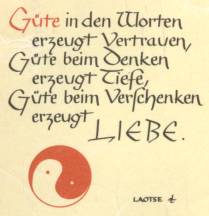 Güte in den Worten
erzeugt Vertrauen,
Güte beim Denken
erzeugt Tiefe,
Güte beim Verschenken
erzeugt
LIEBE.
LAOTSE